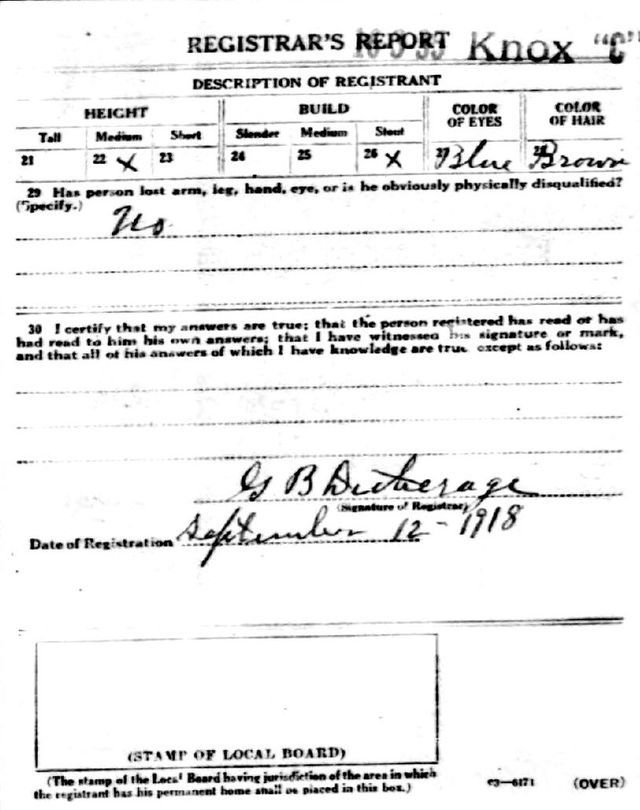 REGISTRAR'S REPORT Knox "C"
DESCRIPTION OF REGISTRANT
HEIGHT BUILD COLOR OF EYES COLOR OF HAIR
Tall Medium Short Slender Medium Stout
21 22 X 23 24 25 26 X 27 Blue 28 Brown
29 Has person lost arm, leg, hand, eye, or is he obviously physically disqualified?
(Specify.) No
30 I certify that my answers are true; that the person registered has read or has
had read to him his own answers; that I have witnessed his signature or mark,
and that all of his answers of which I have knowledge are true except as follows:
G B
(Signature of Registrar)
Date of Registration September 12 - 1918
(STAMP OF LOCAL BOARD)
(The stamp of the Local Board having jurisdiction of the area in which
the registrant has his permanent home shall be placed in this box.)
03—6171 (OVER)